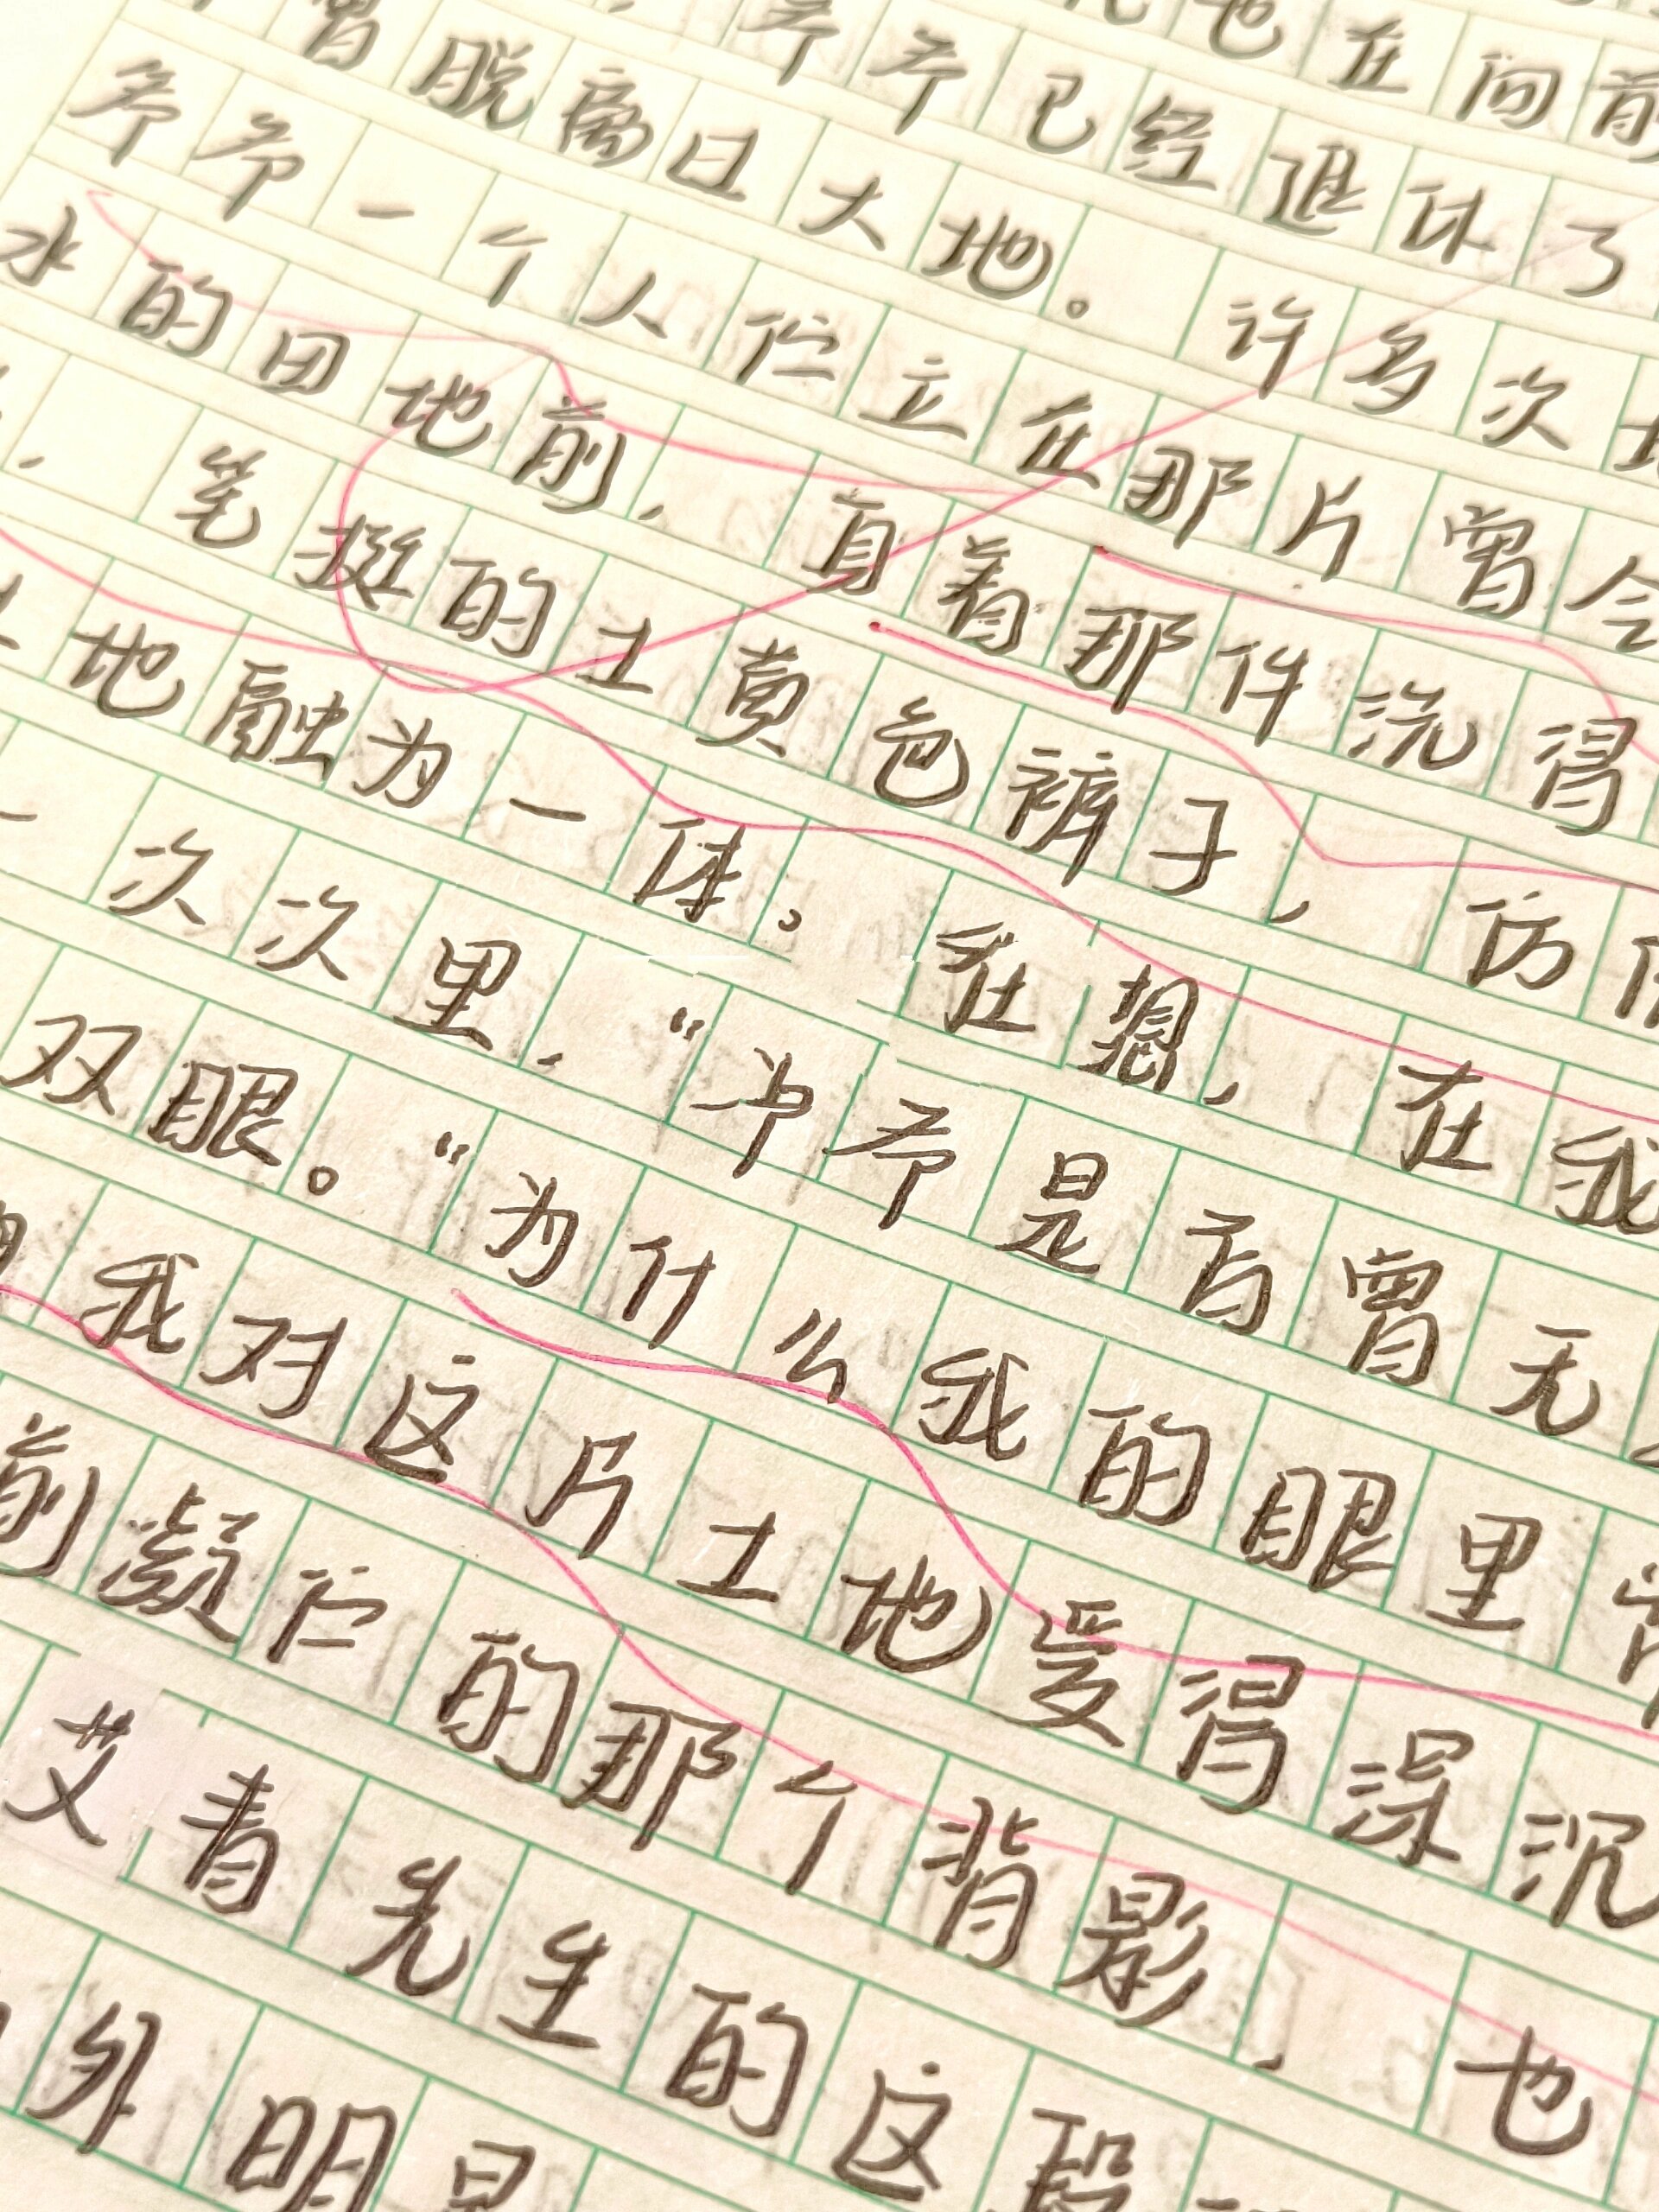 也在向前
爷爷已经退休了
曾脱离日大地。许多次
爷爷一个人伫立在那片曾会
水的田地前，直着那件洗得
，笔挺的土黄色裤子，仿
地融为一体。在想，在我
一次次里，“爷爷是否曾无
双眼。“为什么我的眼里常
我对这片土地爱得深沉
前凝伫的那个背影，也
艾青先生的这段
外明